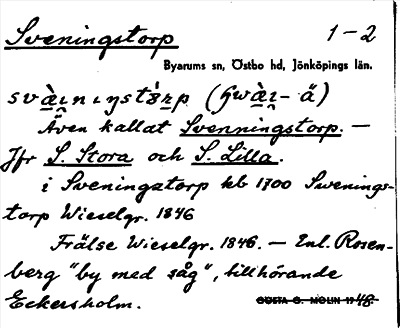 Sveningstorp 1-2
Byarums sn, Östbo hd, Jönköpings län.
svὰi̯nıŋstɔ̀rp (gwὰi̯- ä)
Även kallat Svenningstorp. —
Jfr S. Stora och S. Lilla.
i Sveningstorp kb 1700 Swenings-
torp Wieselgr. 1846
Frälse Wieselgr. 1846. — Enl. Rosen-
berg "by med såg", tillhörande
Eckersholm.
GÖSTA G. MOLIN 1948